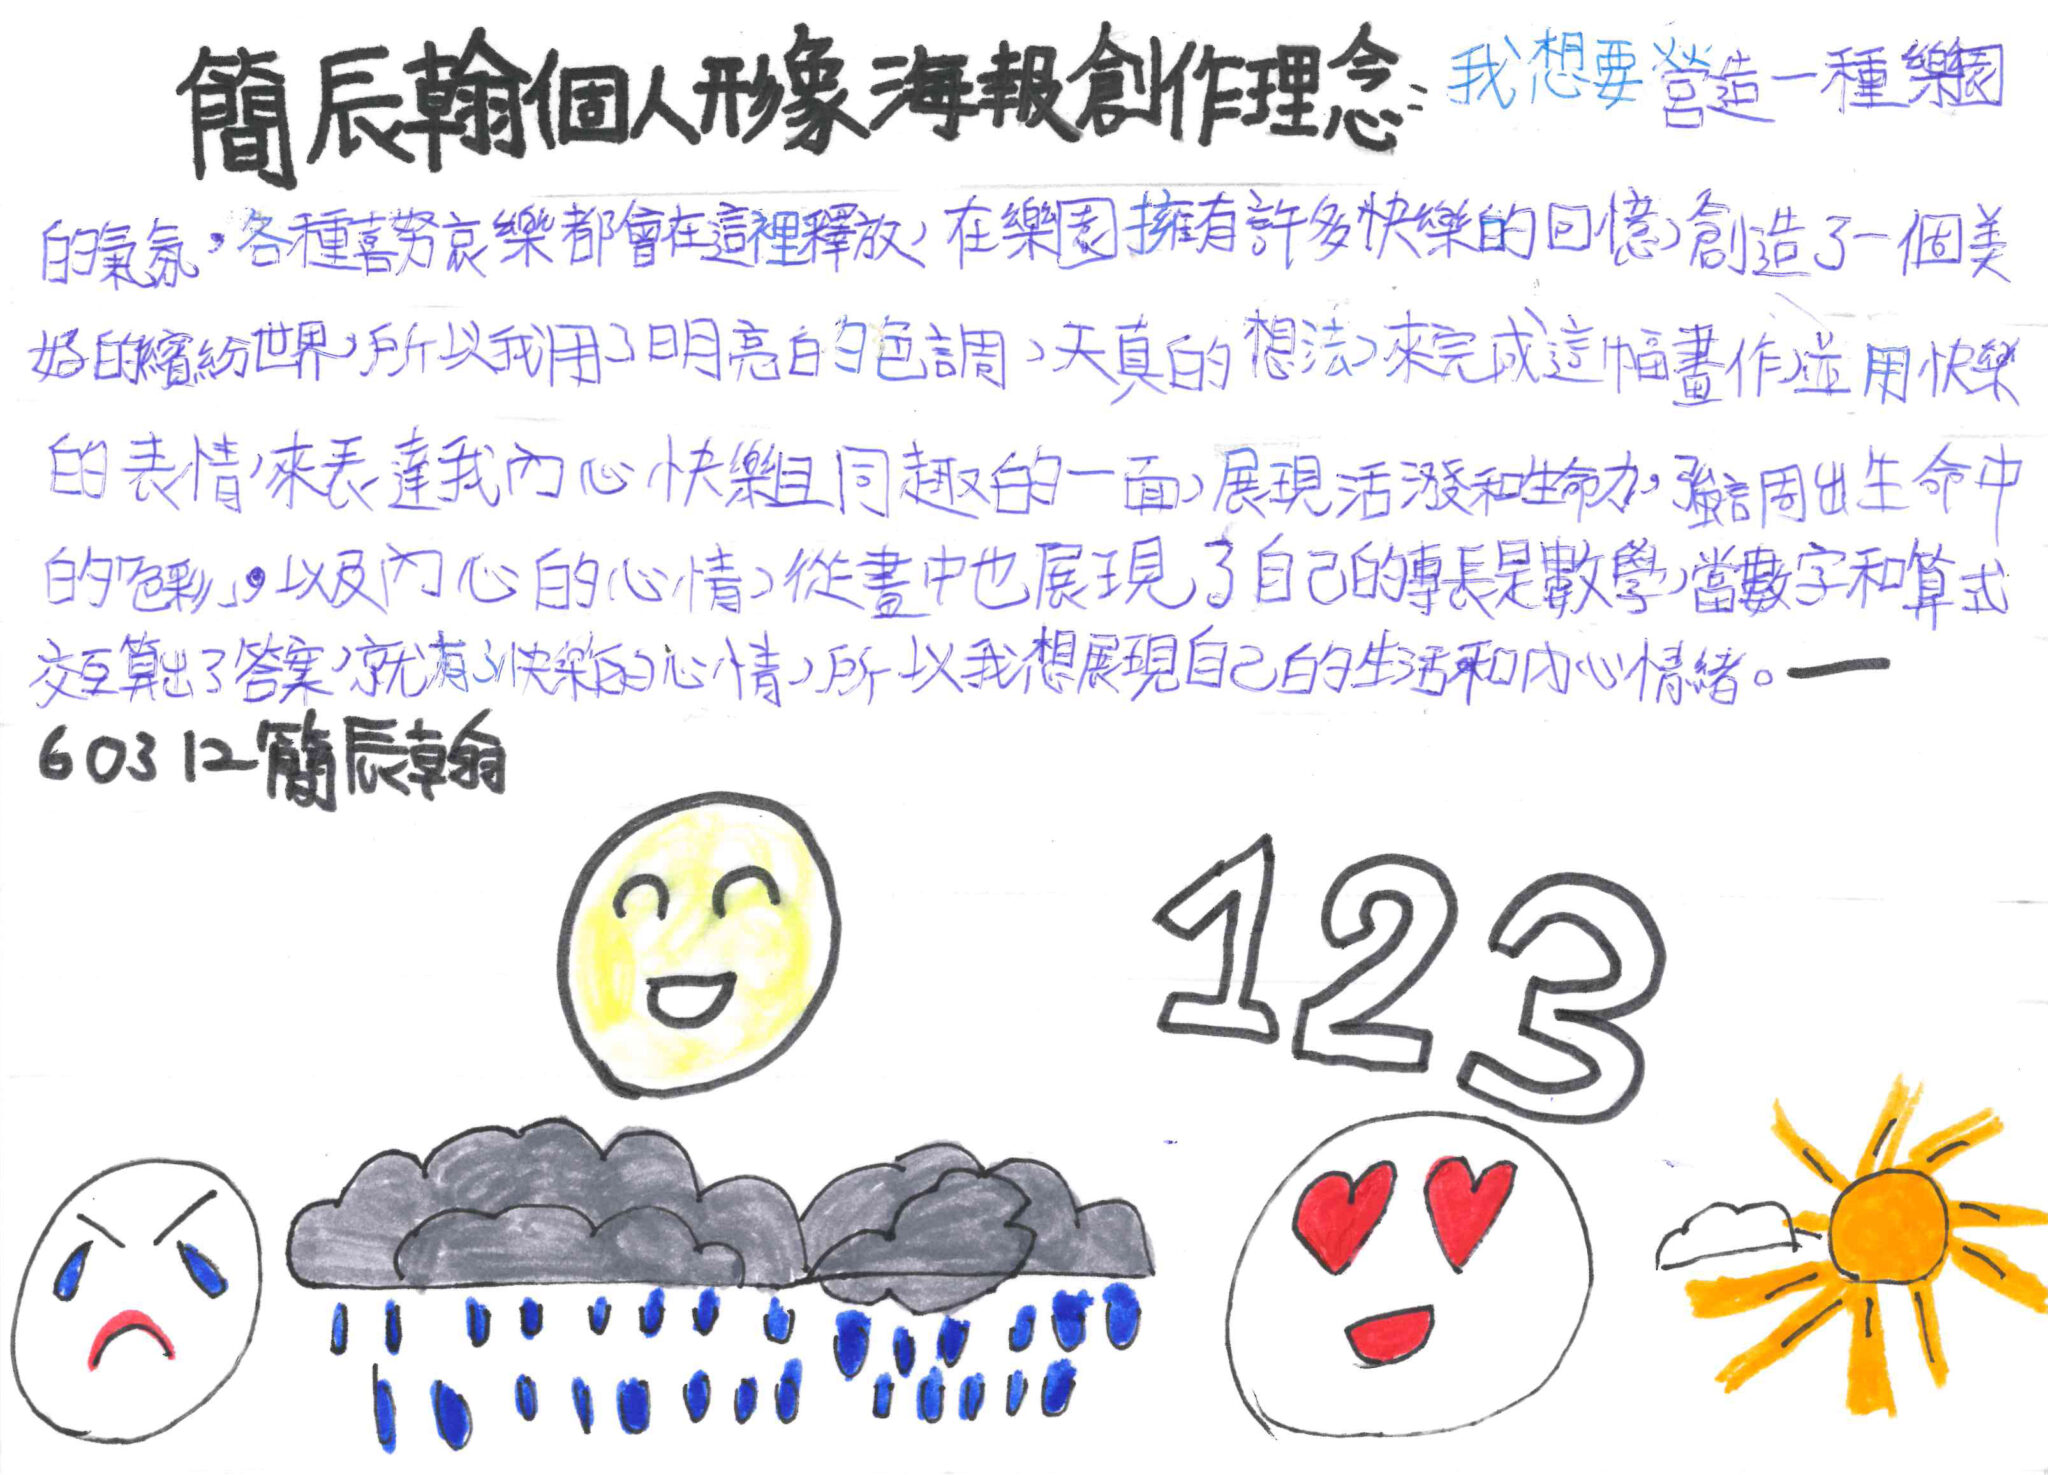 簡辰翰個人形象海報創作理念:我想要營造一種樂園
的氣氛,各種喜努哀樂都會在這裡釋放,在樂園擁有許多快樂的回憶,創造了一個美
好的繽紛世界,所以我用了明亮的色調、天真的想法,來完成這幅畫作,並用快樂
的表情,來表達我內心快樂且同趣的一面,展現活潑和生命力,強調出生命中
的「色彩」,以及內心的心情,從畫中也展現了自己的專長是數學,當數字和算式
交互算出了答案,就有了快樂的心情,所以我想展現自己的生活和內心情緒。—
60312簡辰翰
123